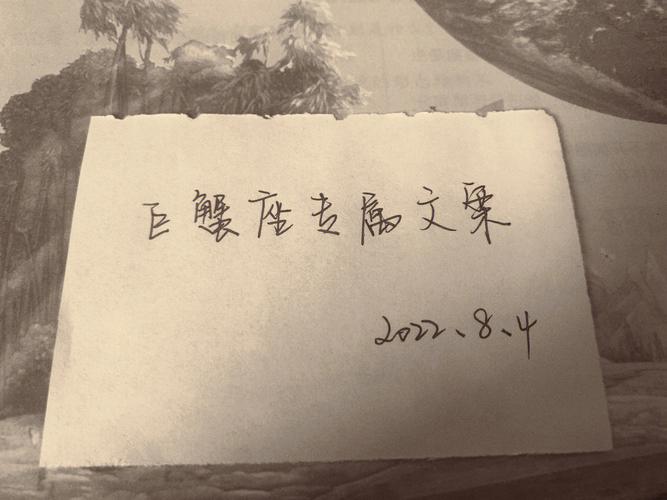 巨蟹座专属文案
2022、8、4